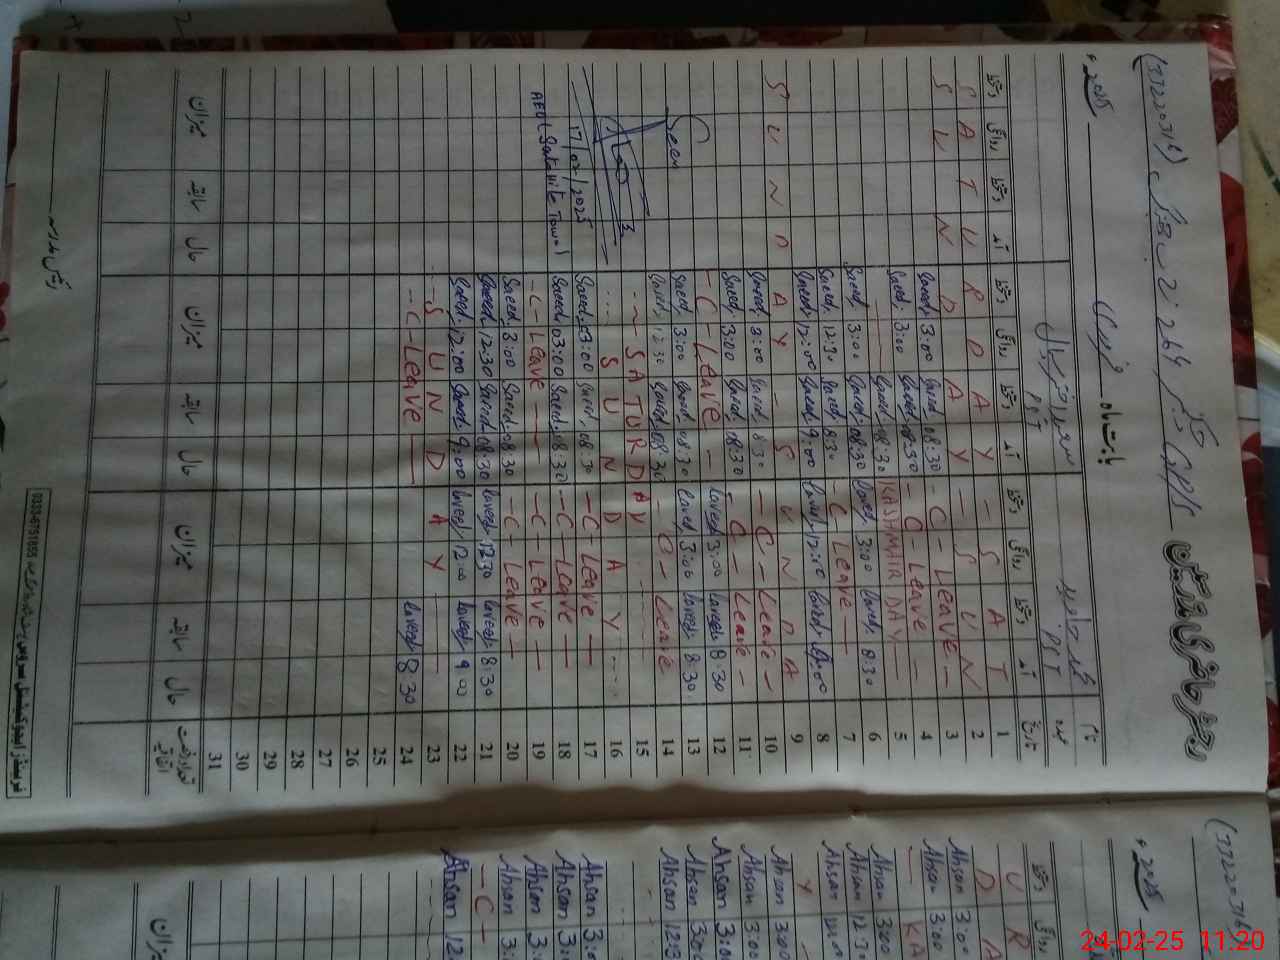 رجسٹر حاضری مدرسین
(37220316)
بابت ماہ فروری 2025ء
نام
عہدہ
محمد جاوید
PST
سعید اقبال
PST
تاریخ آمد دستخط روانگی دستخط آمد دستخط روانگی دستخط آمد دستخط روانگی دستخط
1 S A T U R D A Y — S A T
2 S U N D A Y — S U N
3 -C- Leave - 08:30 Saeed 3:00 Saeed
4 -C- Leave - 08:30 Saeed 3:00 Saeed
5 KASHMAIR DAY
6 8:30 Javed 3:00 Javed 08:30 Saeed 3:00 Saeed
7 -C- Leave 8:30 Saeed 12:30 Saeed
8 9:00 Javed 12:00 Javed 9:00 Saeed 12:00 Saeed
9 S U N D A Y - - S U N D A
10 -C- Leave - 8:30 Saeed 3:00 Saeed
11 -C- Leave - 08:30 Saeed 3:00 Saeed
12 8:30 Javed 3:00 Javed -C- Leave -
13 8:30 Javed 3:00 Javed 08:30 Saeed 3:00 Saeed
14 C - Leave 08:30 Saeed 12:30 Saeed
15 SATURDAY
16 S U N D A Y
17 -C- Leave - 08:30 Saeed 03:00 Saeed
18 -C- Leave - 08:30 Saeed 03:00 Saeed
19 -C- Leave - -C- Leave
20 -C- Leave - 08:30 Saeed 3:00 Saeed
21 8:30 Javed 12:30 Javed 08:30 Saeed 12:30 Saeed
22 9:00 Javed 12:00 Javed 9:00 Saeed 12:00 Saeed
23 S U N D A Y
24 8:30 Javed -C- Leave
25
26
27
28
29
30
31
Seen
17/02/2025
AEO (Satellite Town)
تعداد رخصت اتفاقیہ
حال سابقہ میزان حال سابقہ میزان حال سابقہ میزان
0333-6751655
(37220316)
2025ء
U R
D A
Ahsan 3:00
Ahsan 3:00
KA
Ahsan 3:00
Ahsan 12:3
Ahsan 12:00
Y
Ahsan 3:00
Ahsan 3:00
Ahsan 3:0
Ahsan 3:0
Ahsan 12:3
Ahsan 3:
Ahsan 3:
Ahsan 3
Ahsan 3:
-C-
Ahsan 12
میزان
24-02-25 11:20